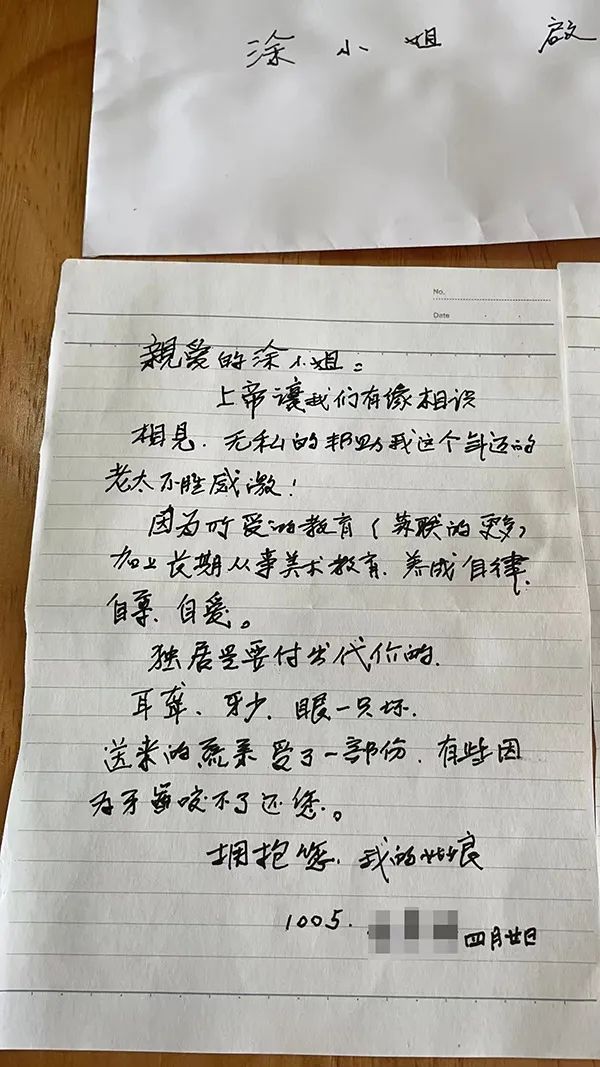 涂小姐 啟
No.
Date
親爱的涂小姐：
上帝讓我们有缘相识
相見．无私的帮助我这个年迈的
老太不胜感激！
因为所受的教育（苏联的更多）
加上长期从事美术教育．养成自律．
自尊．自爱。
独居是要付出代价的．
耳聋．牙少．眼一只坏．
送来的蔬菜受了一部份．有些因
为牙齒咬不了还您。
拥抱您．我的姑娘
1005． 四月廿日